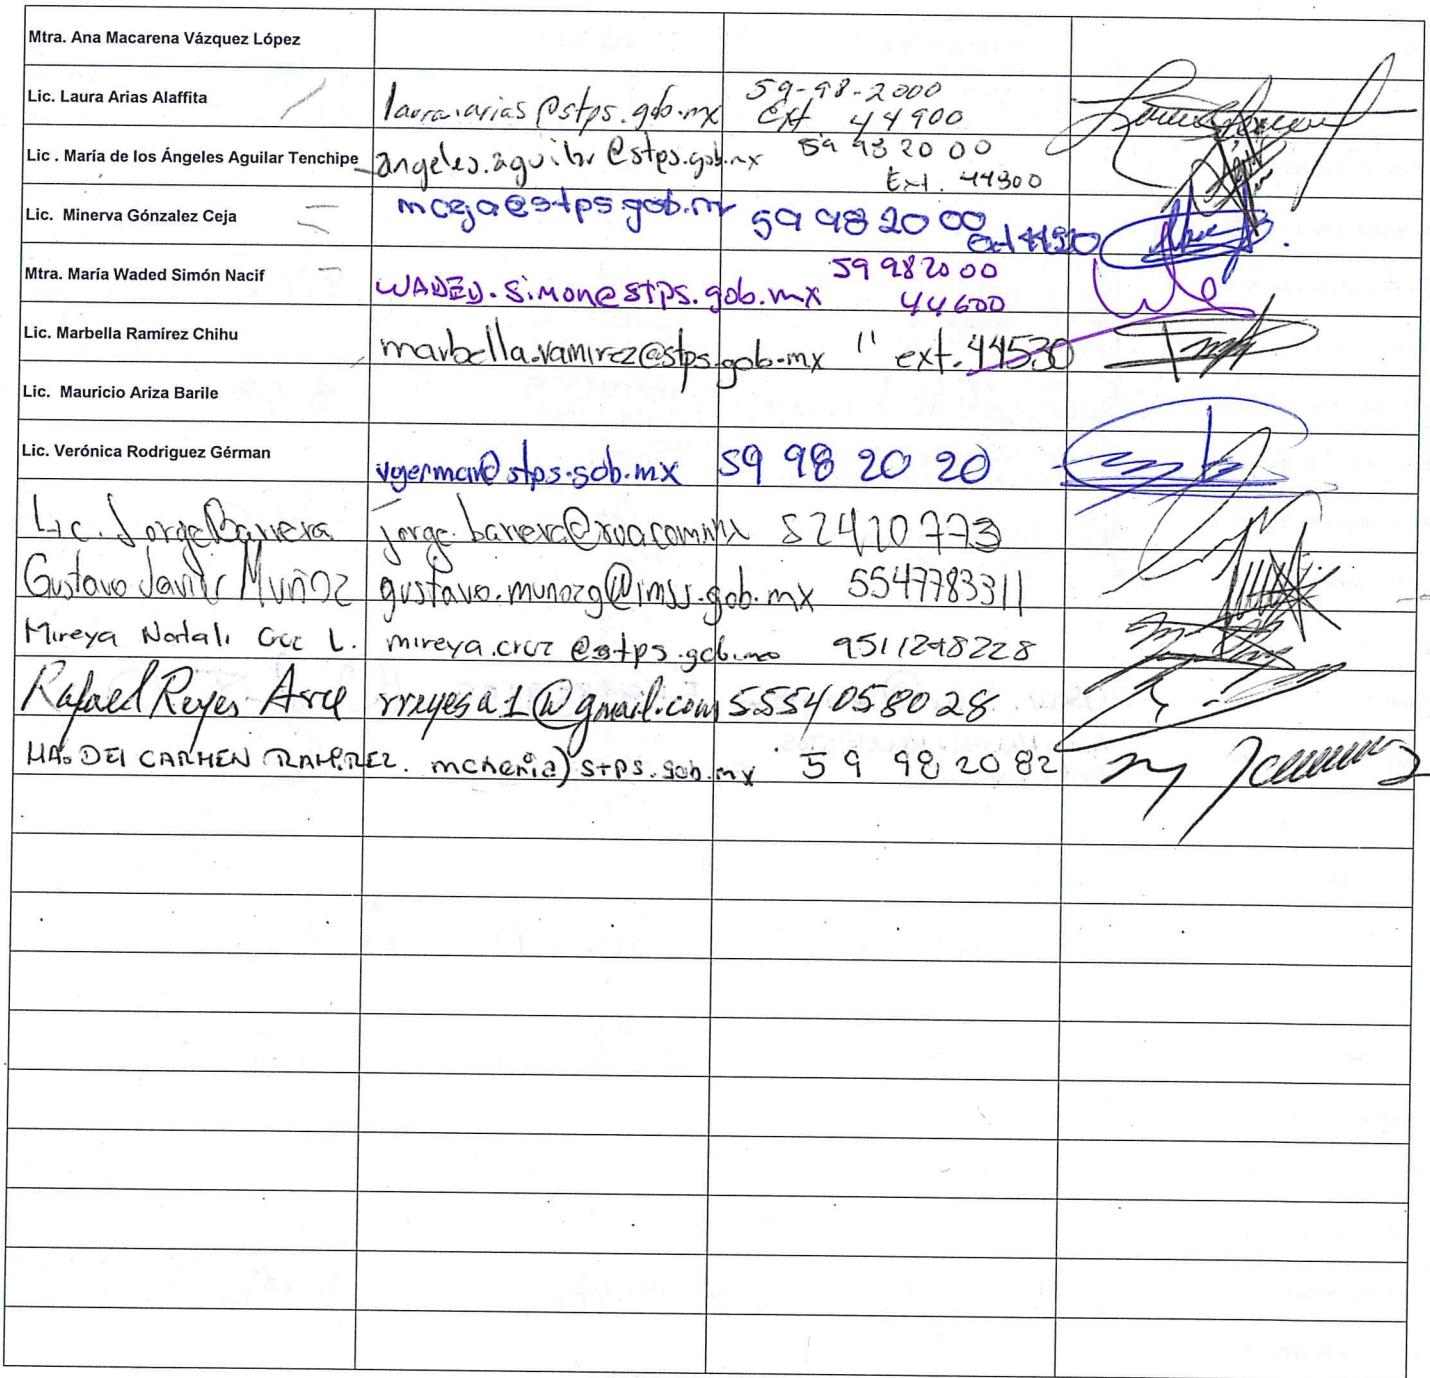 Mtra. Ana Macarena Vázquez López
Lic. Laura Arias Alaffita
laura.arias@stps.gob.mx
59-98-2000
Ext 44900
Lic . María de los Ángeles Aguilar Tenchipe
angeles.aguilar@stps.gob.mx
59 98 20 00
Ext. 44300
Lic. Minerva Gónzalez Ceja
mceja@stps.gob.mx
59 98 20 00
Mtra. María Waded Simón Nacif
WADED.Simon@stps.gob.mx
59 98 20 00
44600
Lic. Marbella Ramírez Chihu
marbella.ramirez@stps.gob.mx
" ext. 44530
Lic. Mauricio Ariza Barile
Lic. Verónica Rodriguez Gérman
vgerman@stps.gob.mx
59 98 20 20
Lic. Jorge Barrera
52420773
Gustavo Javier Muñoz
gustavo.munozg@imss.gob.mx
5547783311
Mireya Natali Cruz L.
mireya.cruz@stps.gob.mx
9511248228
Rafael Reyes Arce
rreyesa1@gmail.com
5554058028
MA. DEL CARMEN RAMIREZ.
stps.gob.mx
59 98 20 82